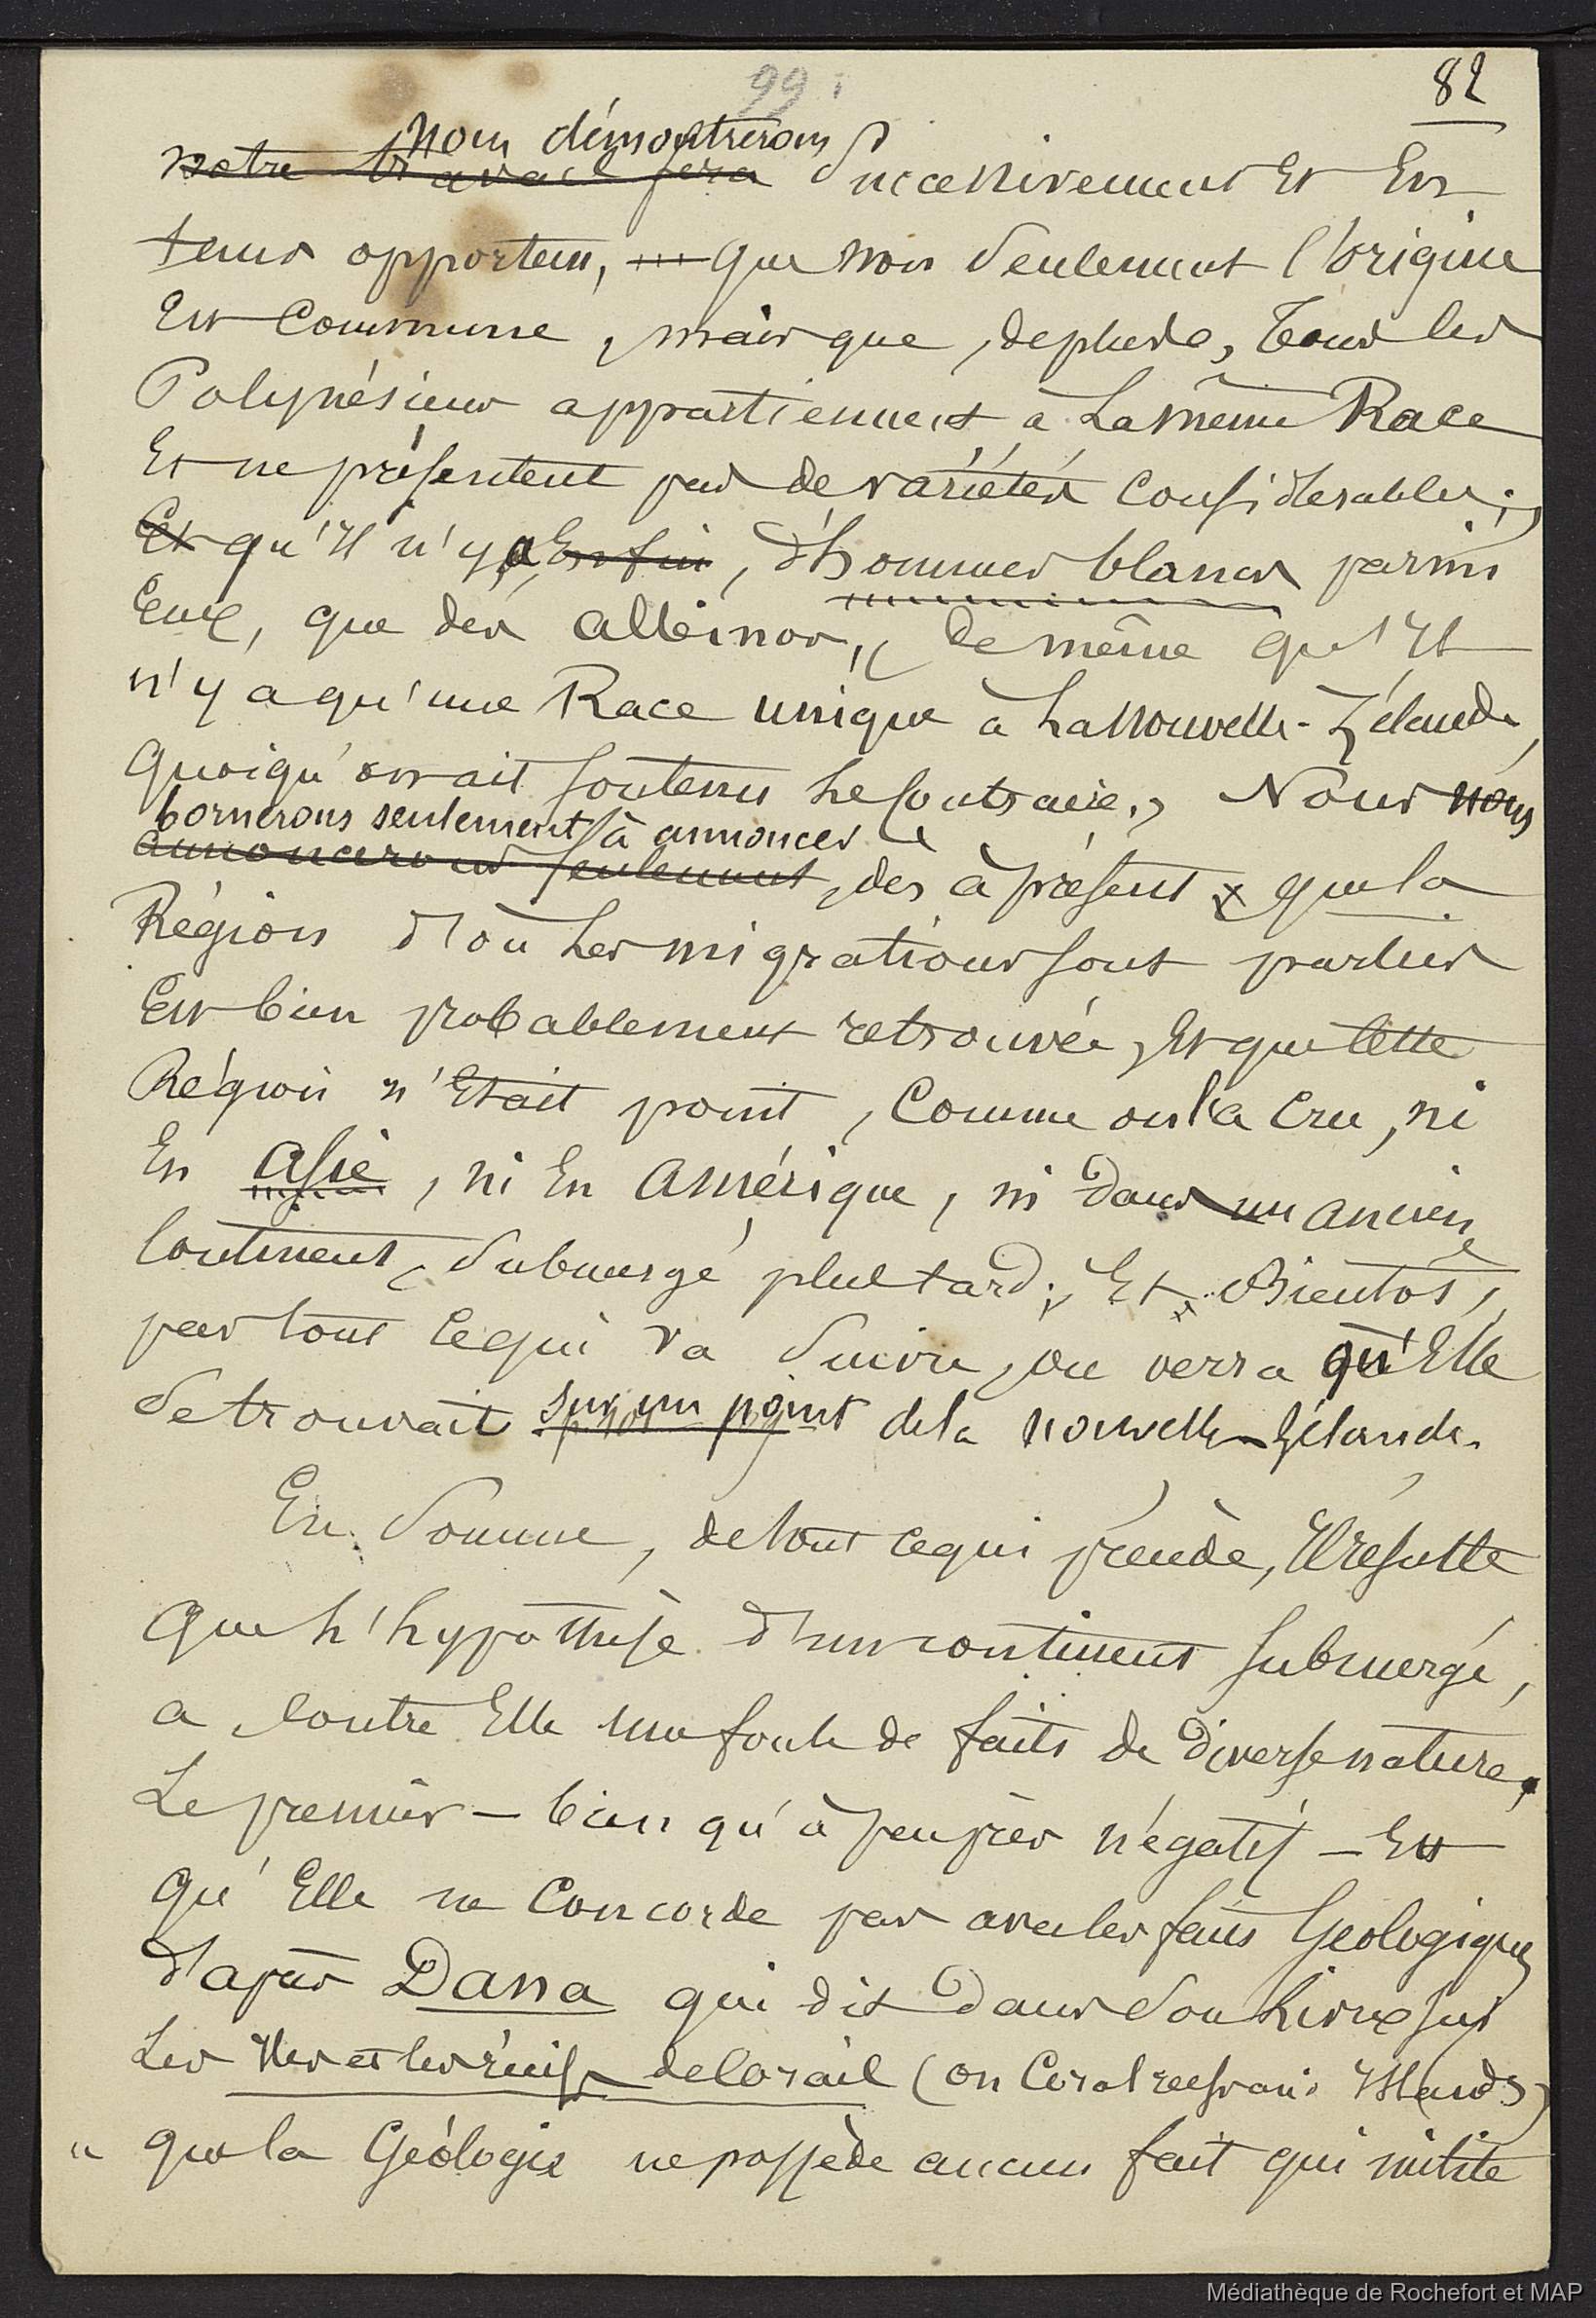 99
82
nous démontrerons
notre travail sera Successivement Et En
tems opportun, que non Seulement l'origine
Est Commune, mais que, de plus, Tous les
Polynésiens appartiennent à La même Race
Et ne présentent pas de variétés Considérables;
Et qu'Il n'y a Enfin, d'hommes blancs parmi
Eux, que des albinos, De même qu'Il
n'y a qu'une Race unique à La Nouvelle-Zélande,
Quoiqu'on ait soutenu Le Contraire. Nous nous
bornerons seulement à annoncer
annoncerons seulement, dès à présent que la
Région d'où Les migrations sont parties
Est bien probablement retrouvée, Et que Cette
Région n'Etait point, Comme on l'a Cru, ni
En Asie, ni En Amérique, ni Dans un ancien
Continent, Submergé plus tard; Et Bientôt,
par tout Ce qui va Suivre, on verra qu'Elle
Se trouvait sur un point de la nouvelle-Zélande.
En Somme, de tout ce qui précède, Il résulte
Que L'hypothèse d'un continent submergé,
a Contre Elle une foule de faits de Diverse nature,
Le premier - bien qu'à peu près négatif - Est
Qu'Elle ne Concorde pas avec les faits Géologiques
d'après Dana qui dit Dans Son Livre sur
Les Iles et les récifs de Corail (on Coral reefs and Islands)
" que la Géologie ne possède aucun fait qui milite
Médiathèque de Rochefort et MAP